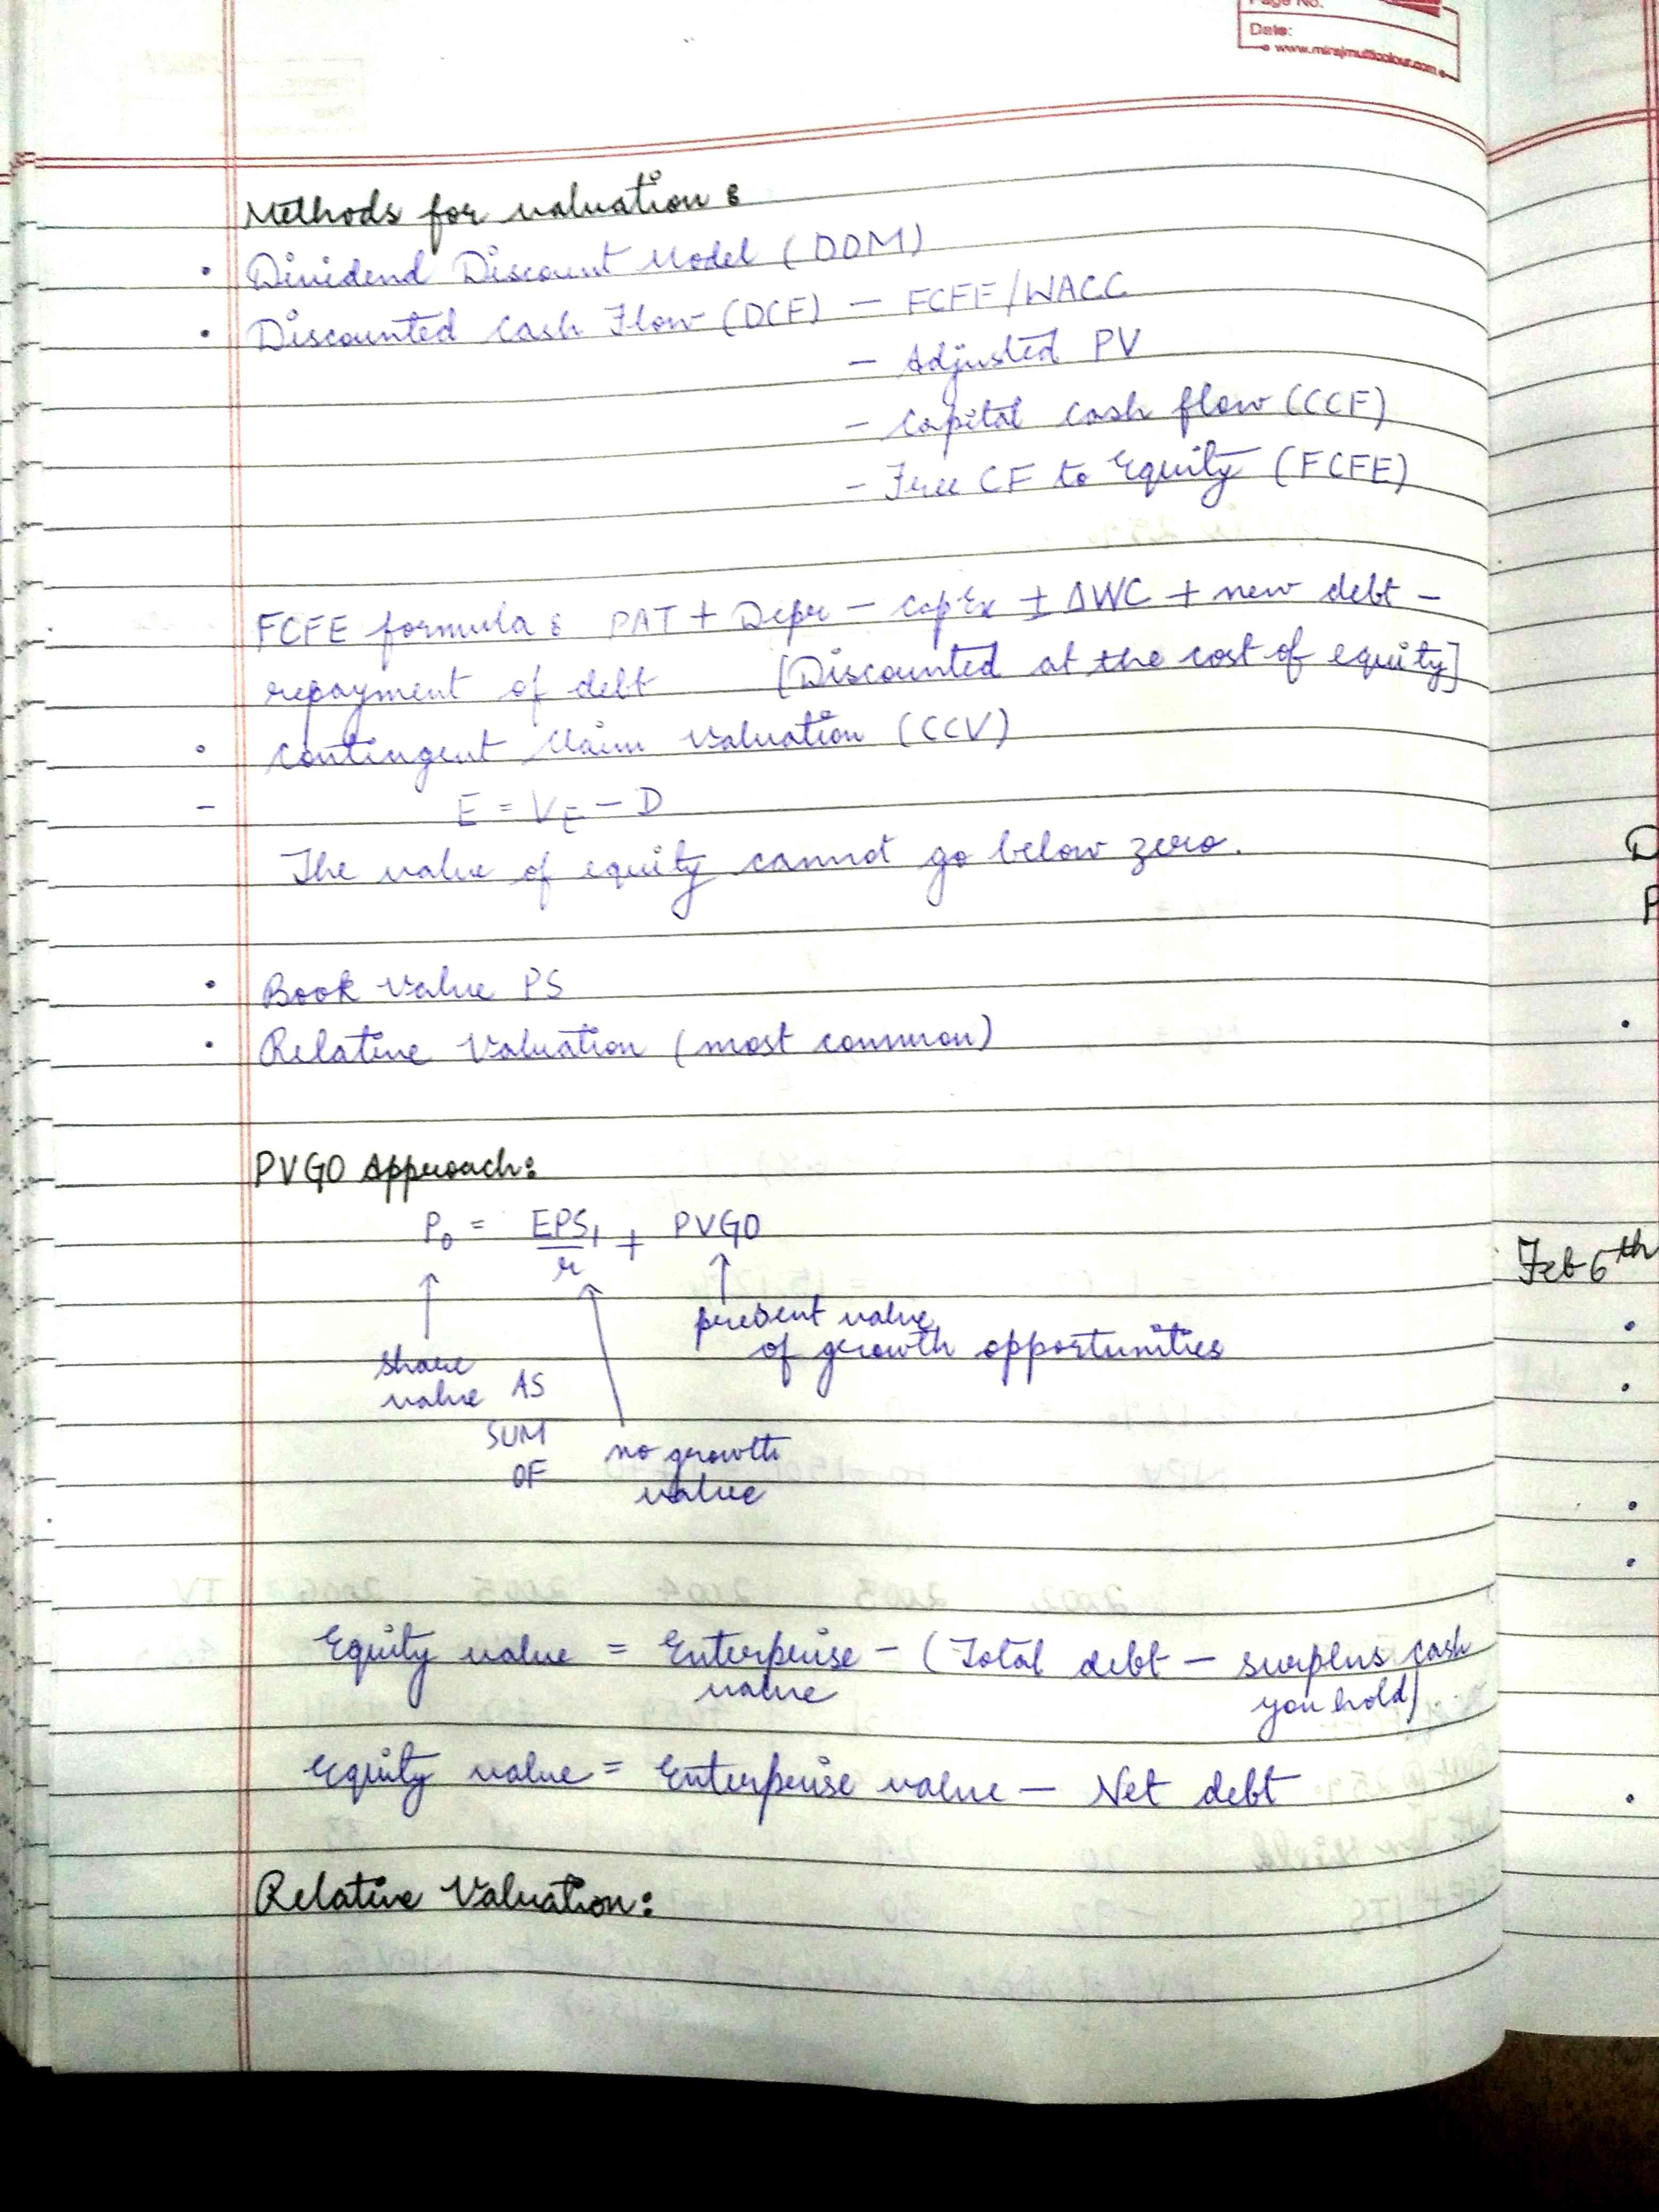 Page No.
Date:
www.mirajmulticolour.com
Methods for valuation :
• Dividend Discount Model (DDM)
• Discounted Cash Flow (DCF) – FCFF/WACC
– Adjusted PV
– Capital cash flow (CCF)
– Free CF to Equity (FCFE)
FCFE formula : PAT + Depr – CapEx ± ΔWC + new debt –
repayment of debt [Discounted at the cost of equity]
• Contingent Claim Valuation (CCV)
– E = V_E – D
The value of equity cannot go below zero.
• Book Value PS
• Relative Valuation (most common)
PVGO Approach:
P₀ = EPS₁/r + PVGO
present value
of growth opportunities
share
value AS
SUM
OF
no growth
value
Equity value = Enterprise – (Total debt – surplus cash
value you hold)
Equity value = Enterprise value – Net debt
Relative Valuation:
D
P
Feb 6th